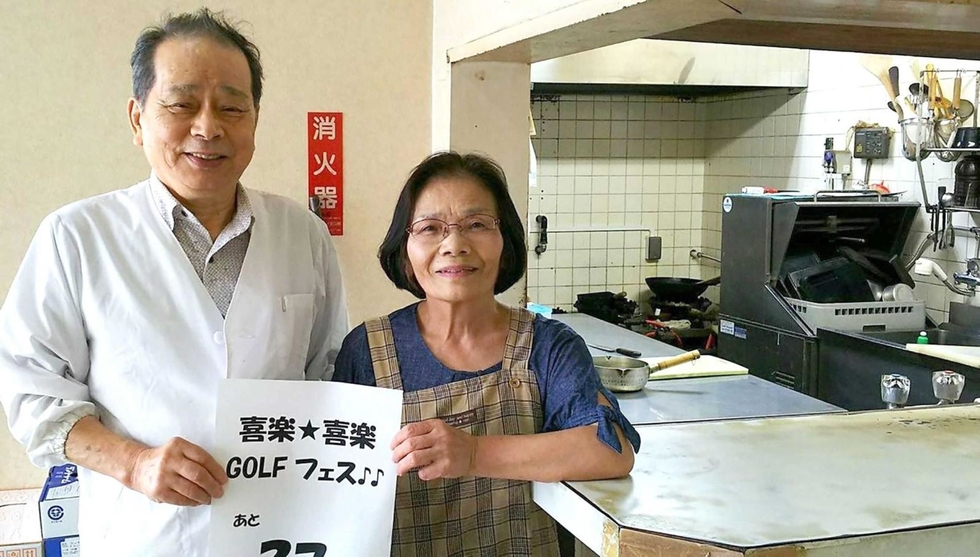 消火器
喜楽★喜楽
GOLF フェス♪♪
あと